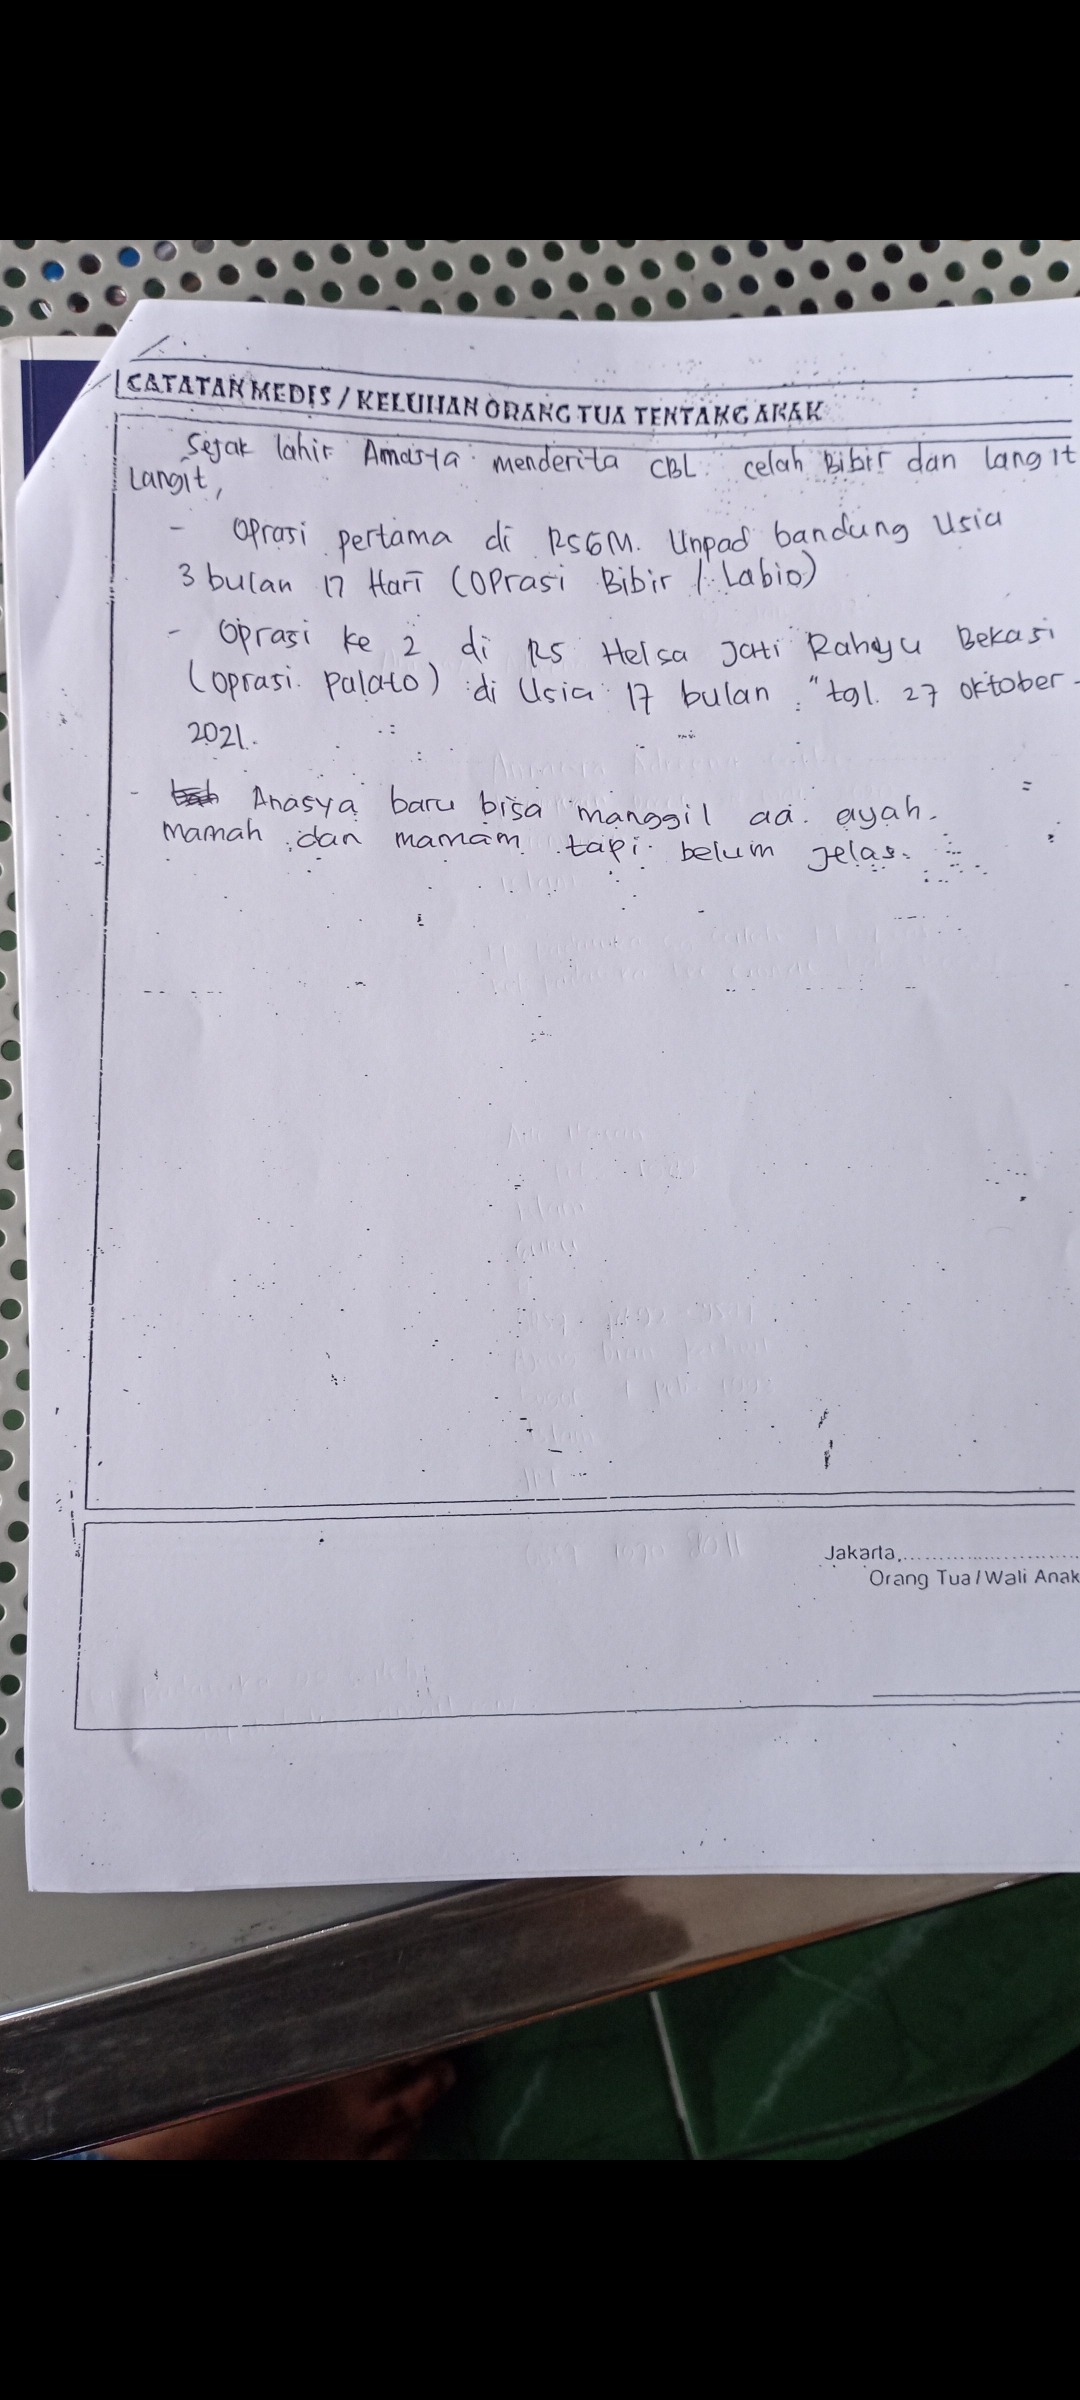 CATATAN MEDIS / KELUHAN ORANG TUA TENTANG ANAK
Sejak lahir Amasya menderita CBL. celah Bibir dan langit
Langit,
- Oprasi pertama di RSGM. Unpad bandung Usia
3 bulan 17 Hari (Oprasi Bibir / Labio)
- Oprasi ke 2 di RS Helsa Jati Rahayu Bekasi
(oprasi palato) di Usia 17 bulan "tgl. 27 oktober -
2021.
- Anasya baru bisa manggil aa. ayah.
mamah dan mamam tapi belum jelas.
Jakarta,..............................
Orang Tua/Wali Anak